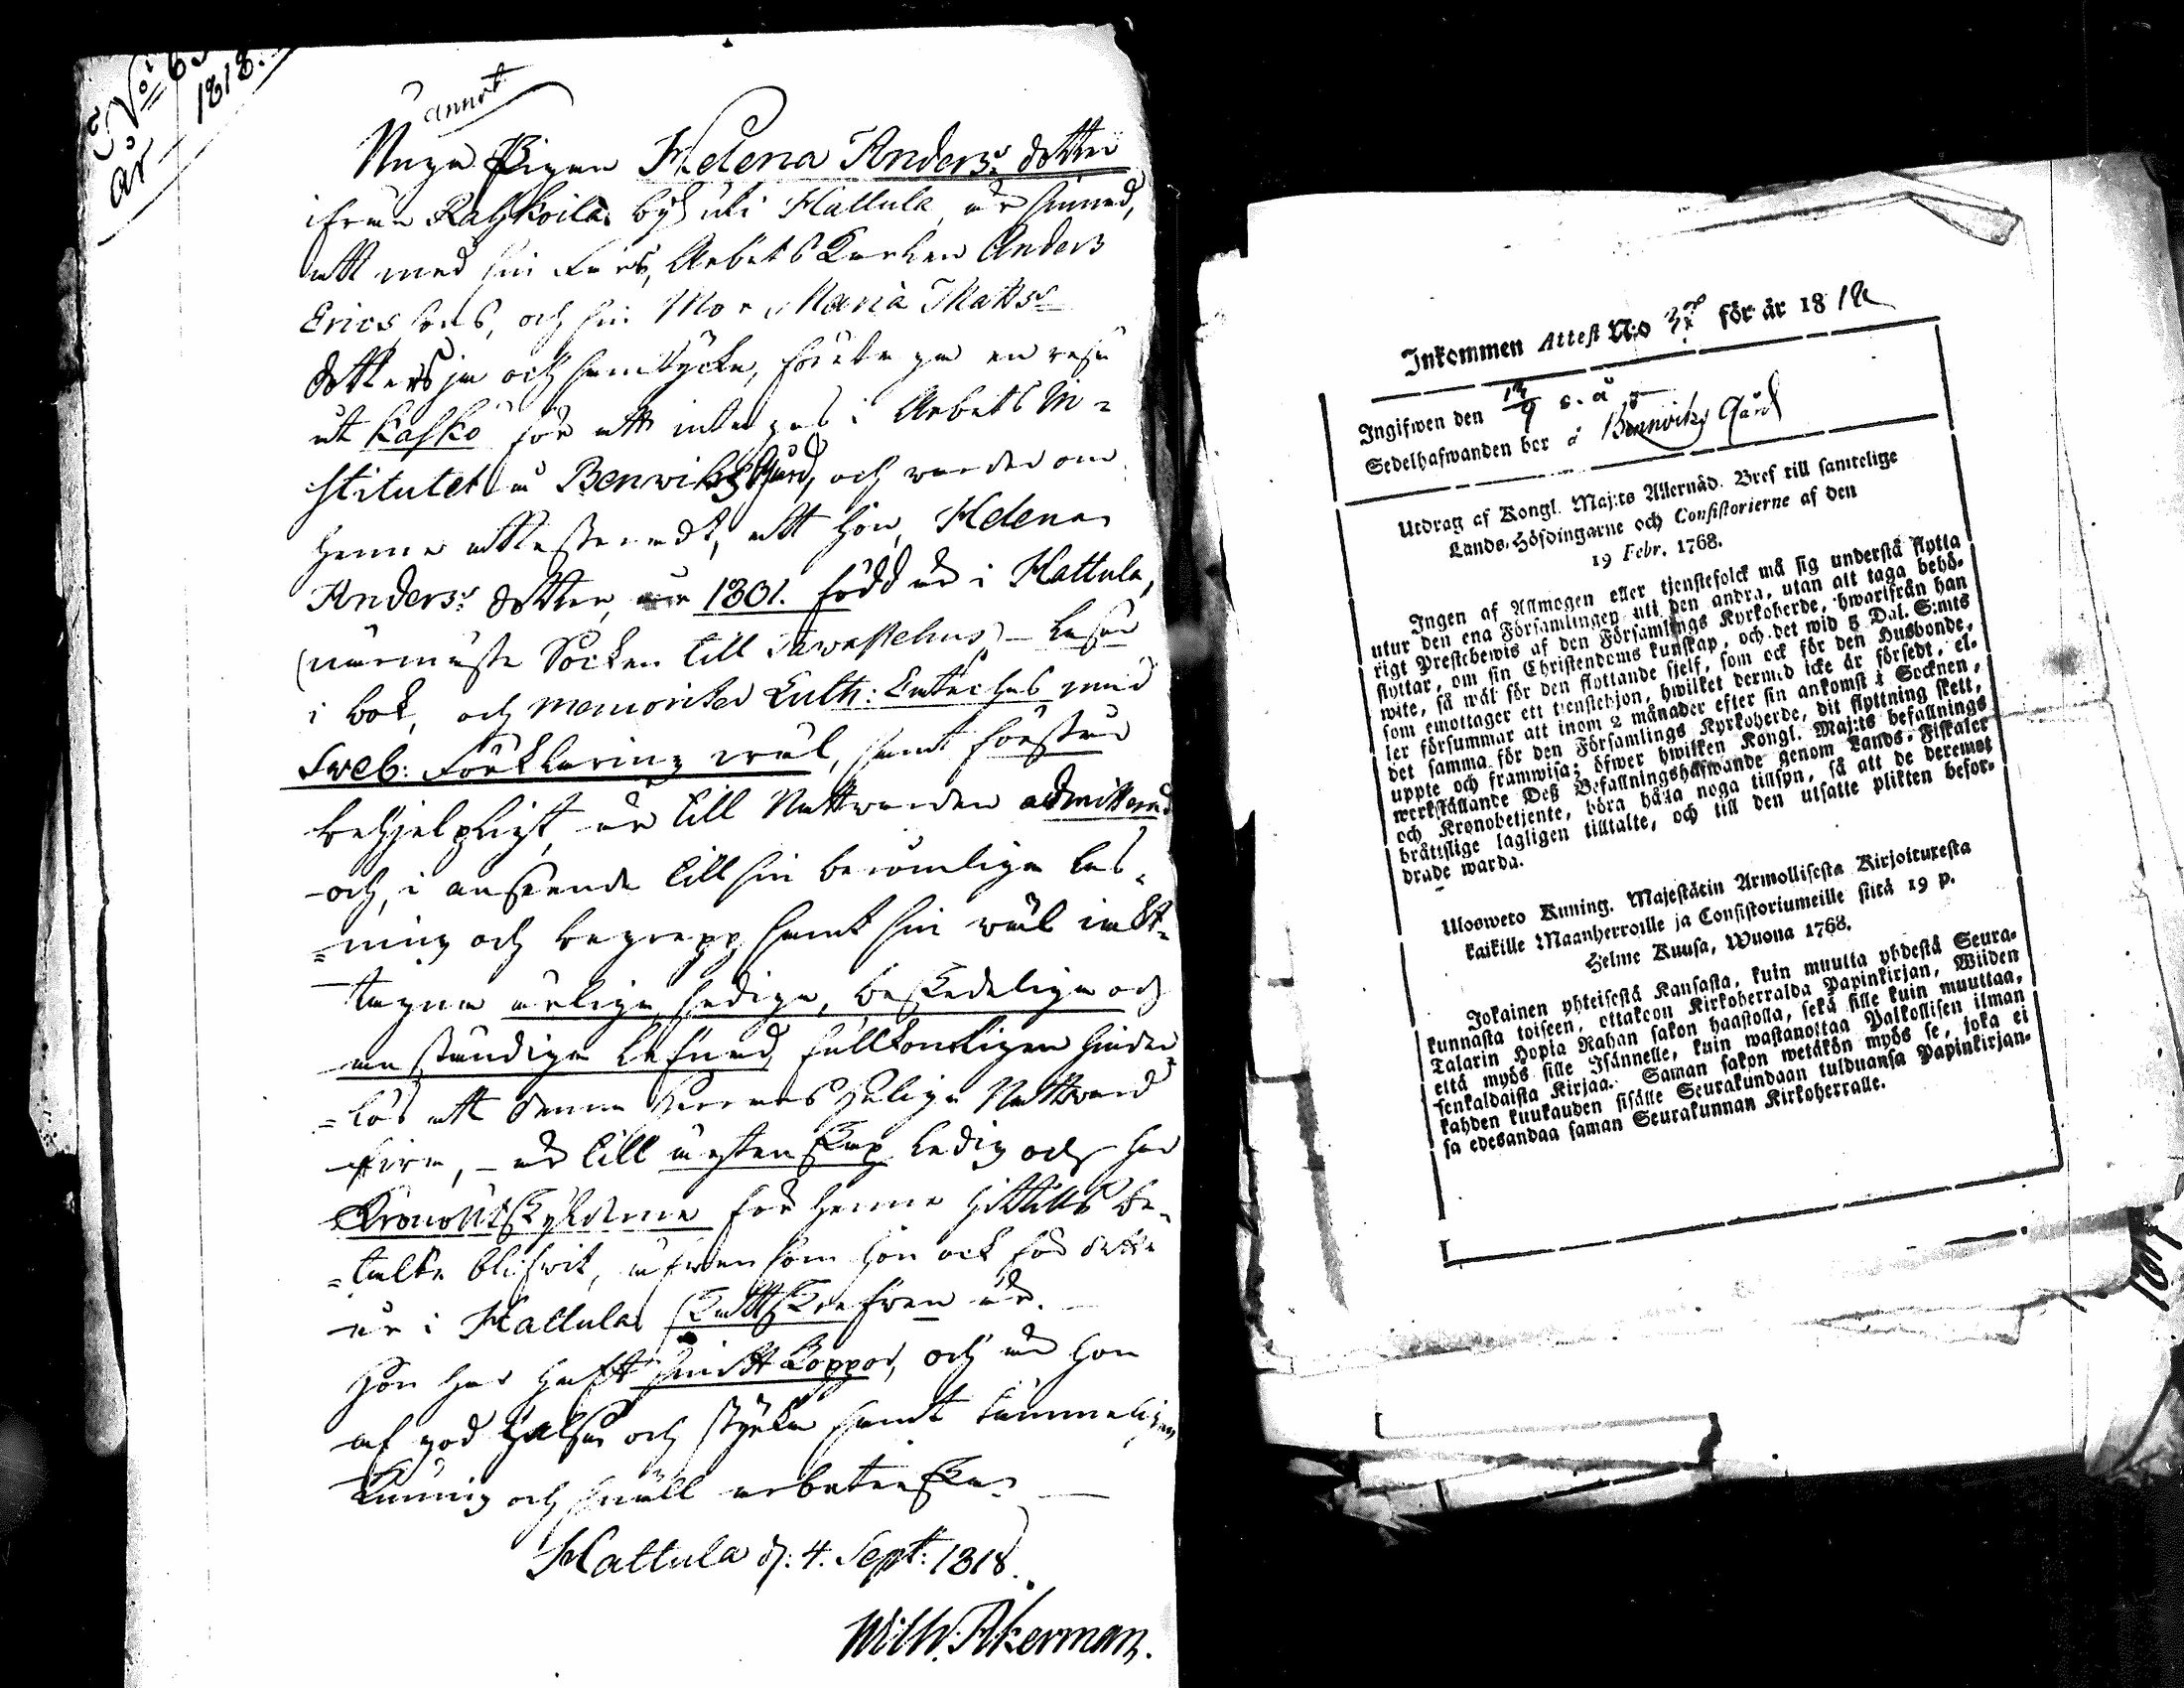 No 65
år 1818.
annot
Unga Pigan Helena Anders: dotter
ifrån Rahkoila by uti Hattula, är sinnad,
att med sin Fars, Arbets Karlen Anders
Erics sons, och sin Mor Maria Matts
dotters ja och samtycke, företaga en resa
åt Kaskö för att intagas i Arbets In-
stitutet å Benwiks Gård, och warder om
henne attesteradt, att hon, Helena
Anders: dotter, år 1801. född är i Hattula,
(närmaste Socken till Tawastehus) – Läser
i bok, och memoriter Luth: Cateches med
Sweb: Förklaring wäl, samt förstår
behjelpligt, är till Nattwarden admitterad
och, i anseende till sin berömliga läs-
=ning och begrepp samt sin wäl iakt-
tagna ärliga, sediga, beskedeliga och
anständiga lefnad, fullkomligen hinder-
=lös att denna Herrans Heliga Nattward
fira, – är till ägtenskap ledig och har
Kronoutskylderna för henne hittills be-
=talte blifwit, äfwen som hon ock för detta
år i Hattula Mattskrefwen är.
Hon har haft Smittkoppor, och är hon
af god hälsa och styrka samt tämmeligen
kunnig och snäll arbeterska.
Hattula d: 4. Sept: 1818.
Wilh. Åkerman.
Inkommen Attest N:o för år 18 18
Ingifwen den 13/9 s. å
Sedelhafwanden bor å Bennviks Gård
Utdrag af Kongl. Maj:ts Allernåd. Bref till samtelige
Lands-Höfdingarne och Consistorierne af den
19 Febr. 1768.
Ingen af Allmogen eller tjenstefolck må sig understå flytta
utur den ena Församlingen uti den andra, utan att taga behö-
rigt Prestebewis af den Församlings Kyrkoherde, hwarifrån han
flyttar, om sin Christendoms kunskap, och det wid 5 Dal. S:mts
wite, så wäl för den flyttande sjelf, som ock för den Husbonde,
som emottager ett tjenstehjon, hwilket dermed icke är försedt, el-
ler försummar att inom 2 månader efter sin ankomst i Socknen,
det samma för den Församlings Kyrkoherde, dit flyttning skett,
uppte och framwisa; öfwer hwilken Kongl. Maj:ts befallnings
werkställande Deß Befallningshafwande genom Lands-Fiskaler
och Kronobetjente, böra hålla noga tillsyn, så att de deremot
bråttslige lagligen tilltalte, och till den utsatte plikten befor-
drade warda.
Ulosweto Kuning. Majestätin Armollisesta Kirjoituxesta
kaikille Maanherroille ja Consistoriumeille siitä 19 p.
Helme Kuusa, Wuona 1768.
Jokainen yhteisestä Kansasta, kuin muutta yhdestä Seura-
kunnasta toiseen, ottakoon Kirkoherralda Papinkirjan, Wiiden
Talarin Hopia Rahan sakon haastolla, sekä sille kuin muuttaa,
että myös sille Isännelle, kuin wastanottaa Palkollisen ilman
senkaldaista Kirjaa. Saman sakon wetäkön myös se, joka ei
kahden kuukauden sisälle Seurakundaan tulduansa Papinkirjan-
sa edesandaa saman Seurakunnan Kirkoherralle.